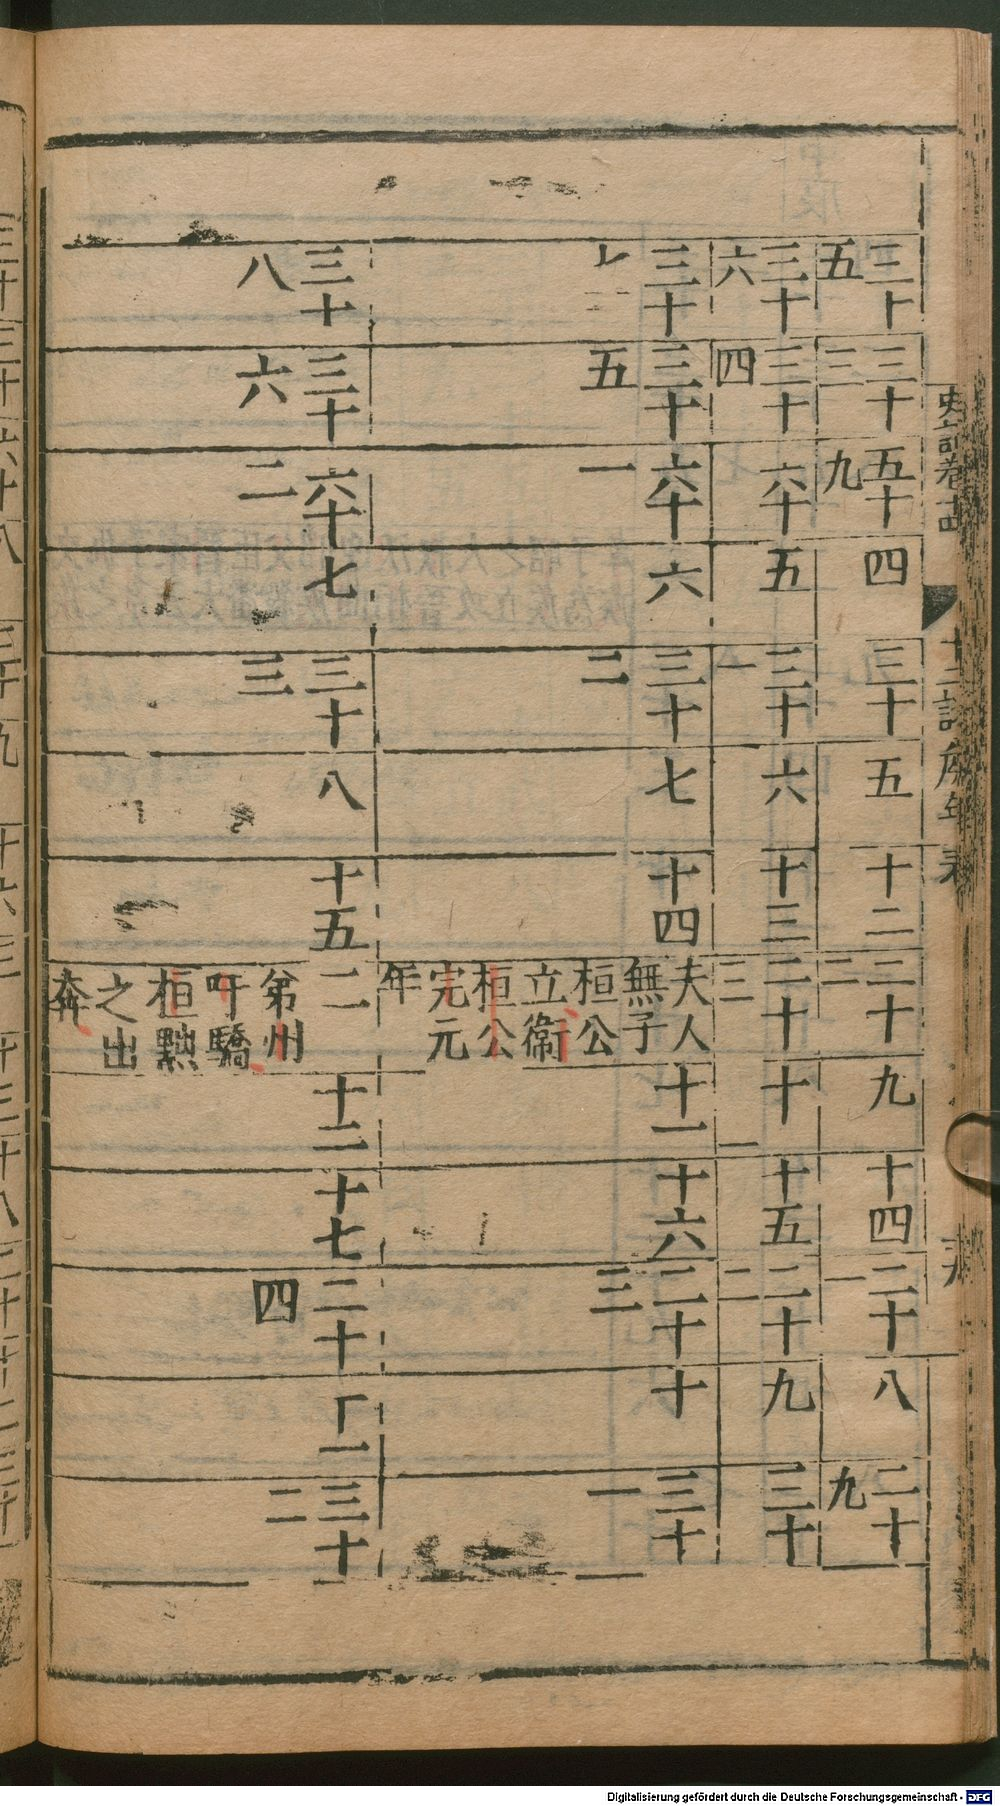 史記卷十四 十二諸侯年表
三十五
三十三
五十九
四
三十
五
十二
二十二
九
十四
二十一
八
二十九
三十六
三十四
六十
五
三十一
六
十三
二十三
十
十五
二十二
九
三十
三十七
三十五
六十一
六
三十二
七
十四
夫人
無子
桓公
立衛
桓公
完元
年
十一
十六
二十三
十
三十一
三十八
三十六
六十二
七
三十三
八
十五
二
弟州
吁驕
桓黜
之出
奔
十二
十七
二十四
十一
三十二
Digitalisierung gefördert durch die Deutsche Forschungsgemeinschaft - DFG